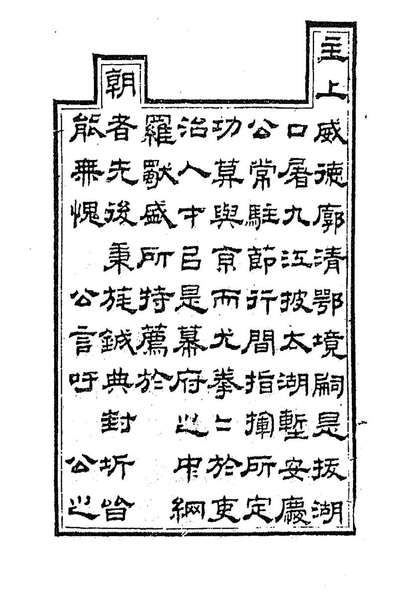 主上威德廓清鄂境嗣是拔湖
口屠九江披太湖塹安慶
公常駐節行間指揮所定
功莫與京而尤拳〻於吏
治人才㠯是幕府之中網
羅盛所特薦於
朝者先後秉旄鉞典封圻皆
能無愧 公言吁 公之